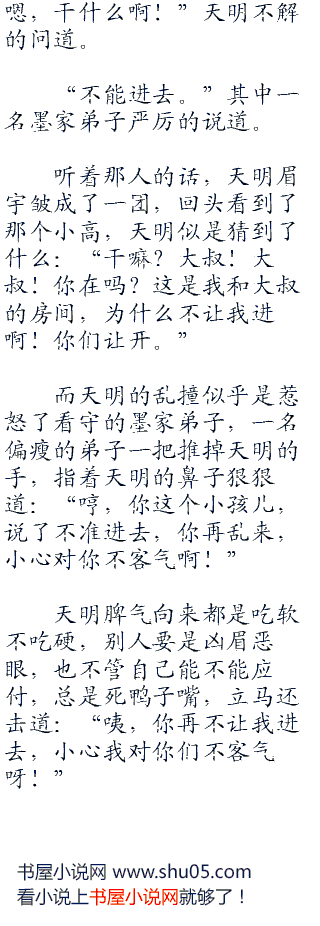 嗯，干什么啊！”天明不解
的问道。
“不能进去。”其中一
名墨家弟子严厉的说道。
听着那人的话，天明眉
宇皱成了一团，回头看到了
那个小高，天明似是猜到了
什么：“干嘛？大叔！大
叔！你在吗？这是我和大叔
的房间，为什么不让我进
啊！你们让开。”
而天明的乱撞似乎是惹
怒了看守的墨家弟子，一名
偏瘦的弟子一把推掉天明的
手，指着天明的鼻子狠狠
道：“哼，你这个小孩儿，
说了不准进去，你再乱来，
小心对你不客气啊！”
天明脾气向来都是吃软
不吃硬，别人要是凶眉恶
眼，也不管自己能不能应
付，总是死鸭子嘴，立马还
击道：“咦，你再不让我进
去，小心我对你们不客气
呀！”
书屋小说网 www.shu05.com
看小说上书屋小说网就够了！